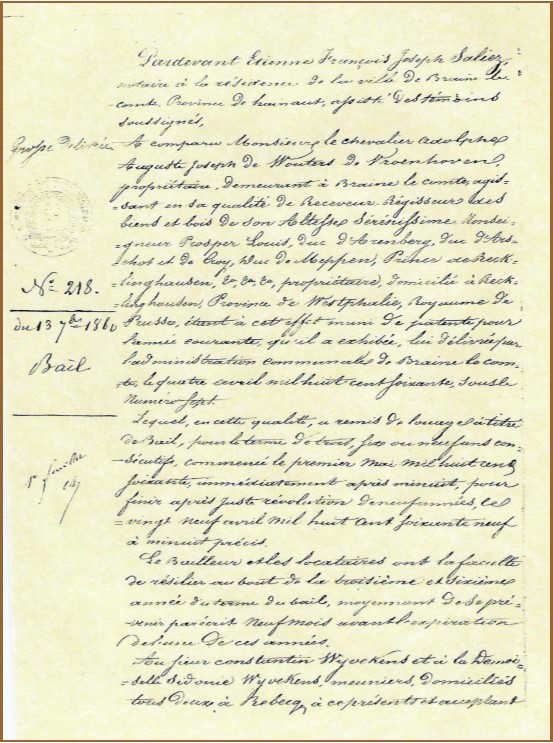 Pardevant Etienne François Joseph Saliez,
notaire à la résidence de la ville de Braine le
comte Province de hainaut, assisté des témoins
soussignés,
Grosse délivrée
A comparu Monsieur le chevalier adolphe
Auguste Joseph de Wouters de Vroenhoven,
propriétaire, demeurant à Braine le comte, agis=
=sant en sa qualité de Receveur. Régisseur des
biens et bois de son Altesse Sérénissime Monsei=
=gneur Prosper Louis, duc d'Arenberg, duc d'Ars=
=chot et de Croy, duc de Meppen, Prince de Reck=
=linghausen, &a, &a, &a, propriétaire, domicilié à Reck=
=linghausen, Province de Westphalie, Royaume de
Prusse, étant à cet effet muni de patente pour
l'année courante, qu'il a exhibée, lui délivrée par
l'administration communale de Braine le com=
=te, le quatre avril mil huit cent soixante, sous le
Numéro sept.
No 218.
du 13 7bre 1860
Bail
Lequel, en cette qualité, a remis de louage et à titre
de Bail, pour le terme de trois, six ou neuf ans con=
=sécutifs, commencé le premier Mai Mil huit cent
soixante, immédiatement après minuit, pour
finir après juste révolution de neuf années, le
=vingt neuf avril Mil huit cent soixante neuf
à minuit précis.
1r feuille
Le Bailleur et les locataires ont la faculté
de résilier au bout de la troisième et sixième
année du terme du bail, moyennant de se pré=
=venir par écrit neuf mois avant l'expiration
de l'une de ces années.
Au sieur constantin Wyvekens et à la Demoi=
=selle Sidonie Wyvekens, meuniers, domiciliés
tous deux à Rebecq, à ce présents et acceptant